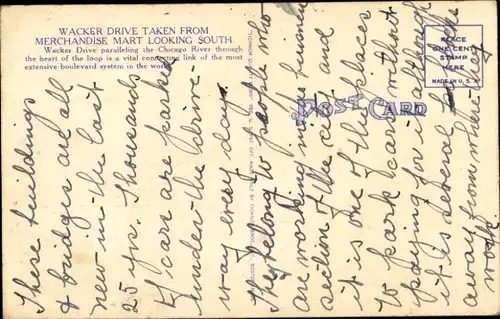 WACKER DRIVE TAKEN FROM
MERCHANDISE MART LOOKING SOUTH
Wacker Drive paralleling the Chicago River through
the heart of the loop is a vital connecting link of the most
extensive boulevard system in the world.
POST CARD
PLACE
ONE CENT
STAMP
HERE
MADE IN U.S.A.
These buildings
& bridges are all
new in the last
25 yrs. Thousands
of cars are parked
under the drive-
way every day.
They belong to people who
are working in the business
section of the city and
it is one of the places
to park cars without
paying for it although
it is several
away from where they
work